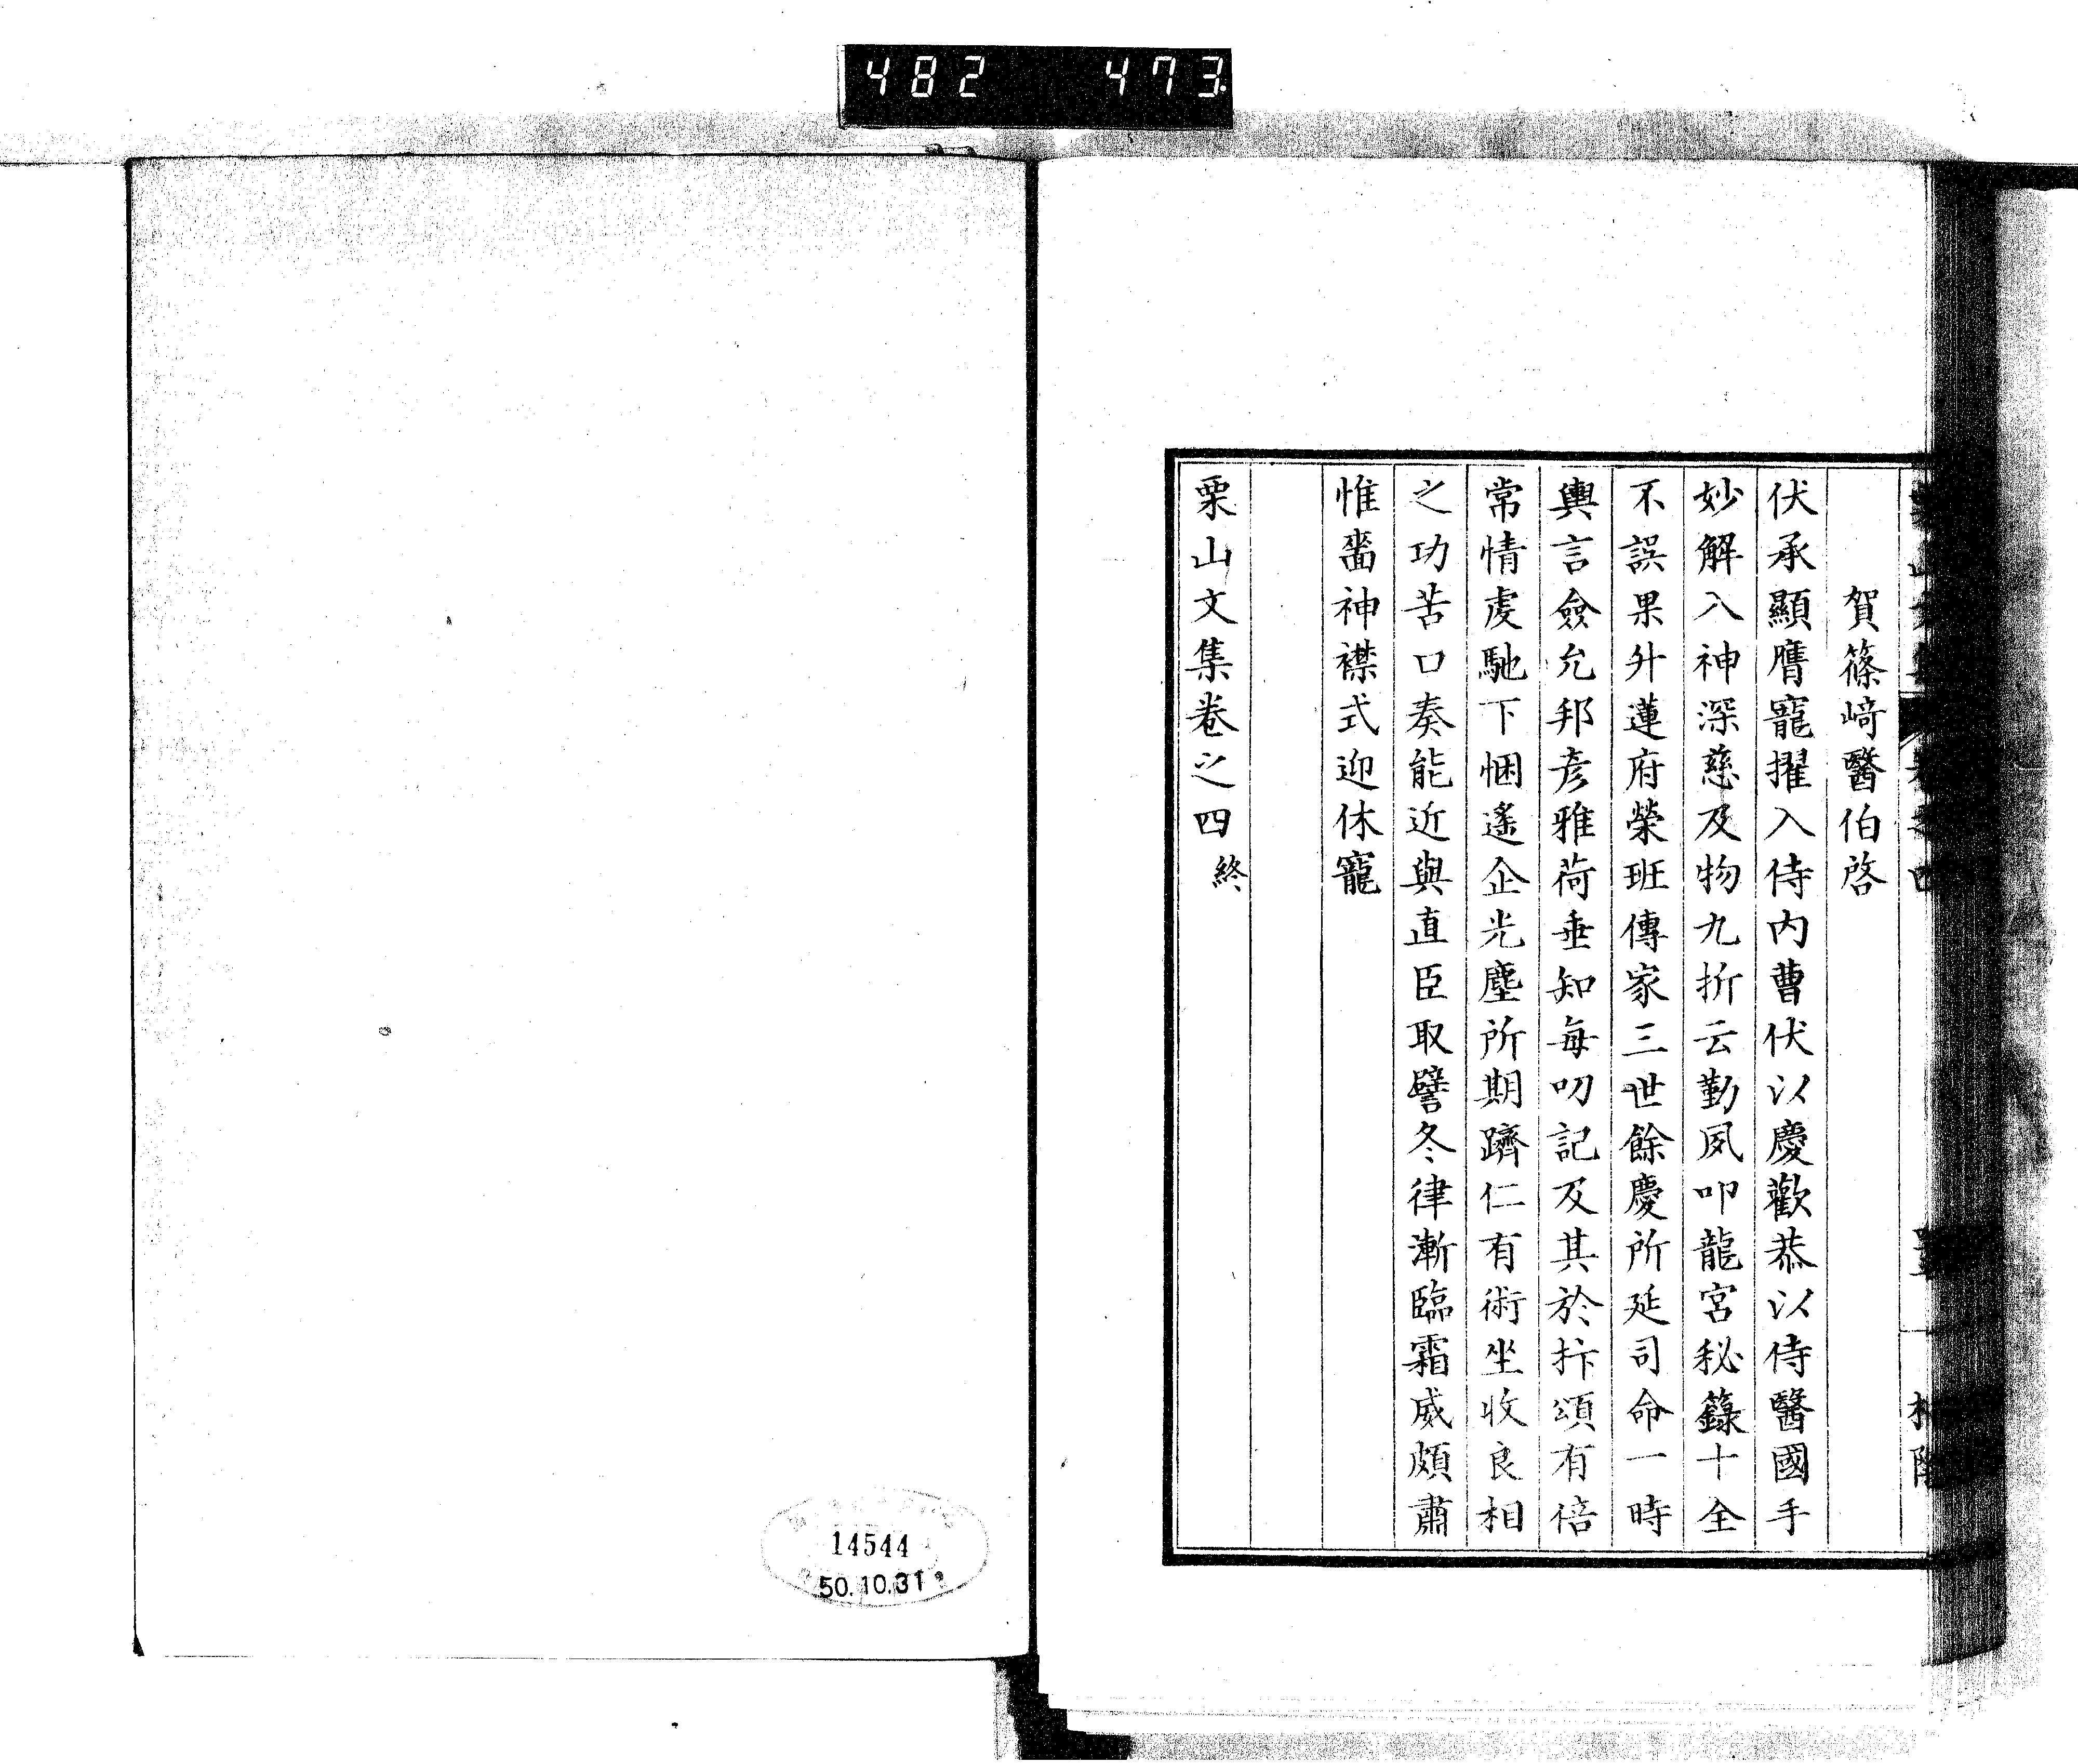 482 473
賀篠﨑醫伯啓
伏承顯膺寵擢入侍内曹伏以慶歡恭以侍醫國手
妙解入神深慈及物九折云勤夙叩龍宮秘籙十全
不誤果升蓮府榮班傳家三世餘慶所延司命一時
輿言僉允邦彦雅荷垂知每叨記及其於抃頌有倍
常情虔馳下悃遙企光塵所期躋仁有術坐收良相
之功苦口奏能近與直臣取譬冬律漸臨霜威頗肅
惟嗇神襟式迎休寵
栗山文集卷之四 終
14544
50.10.31